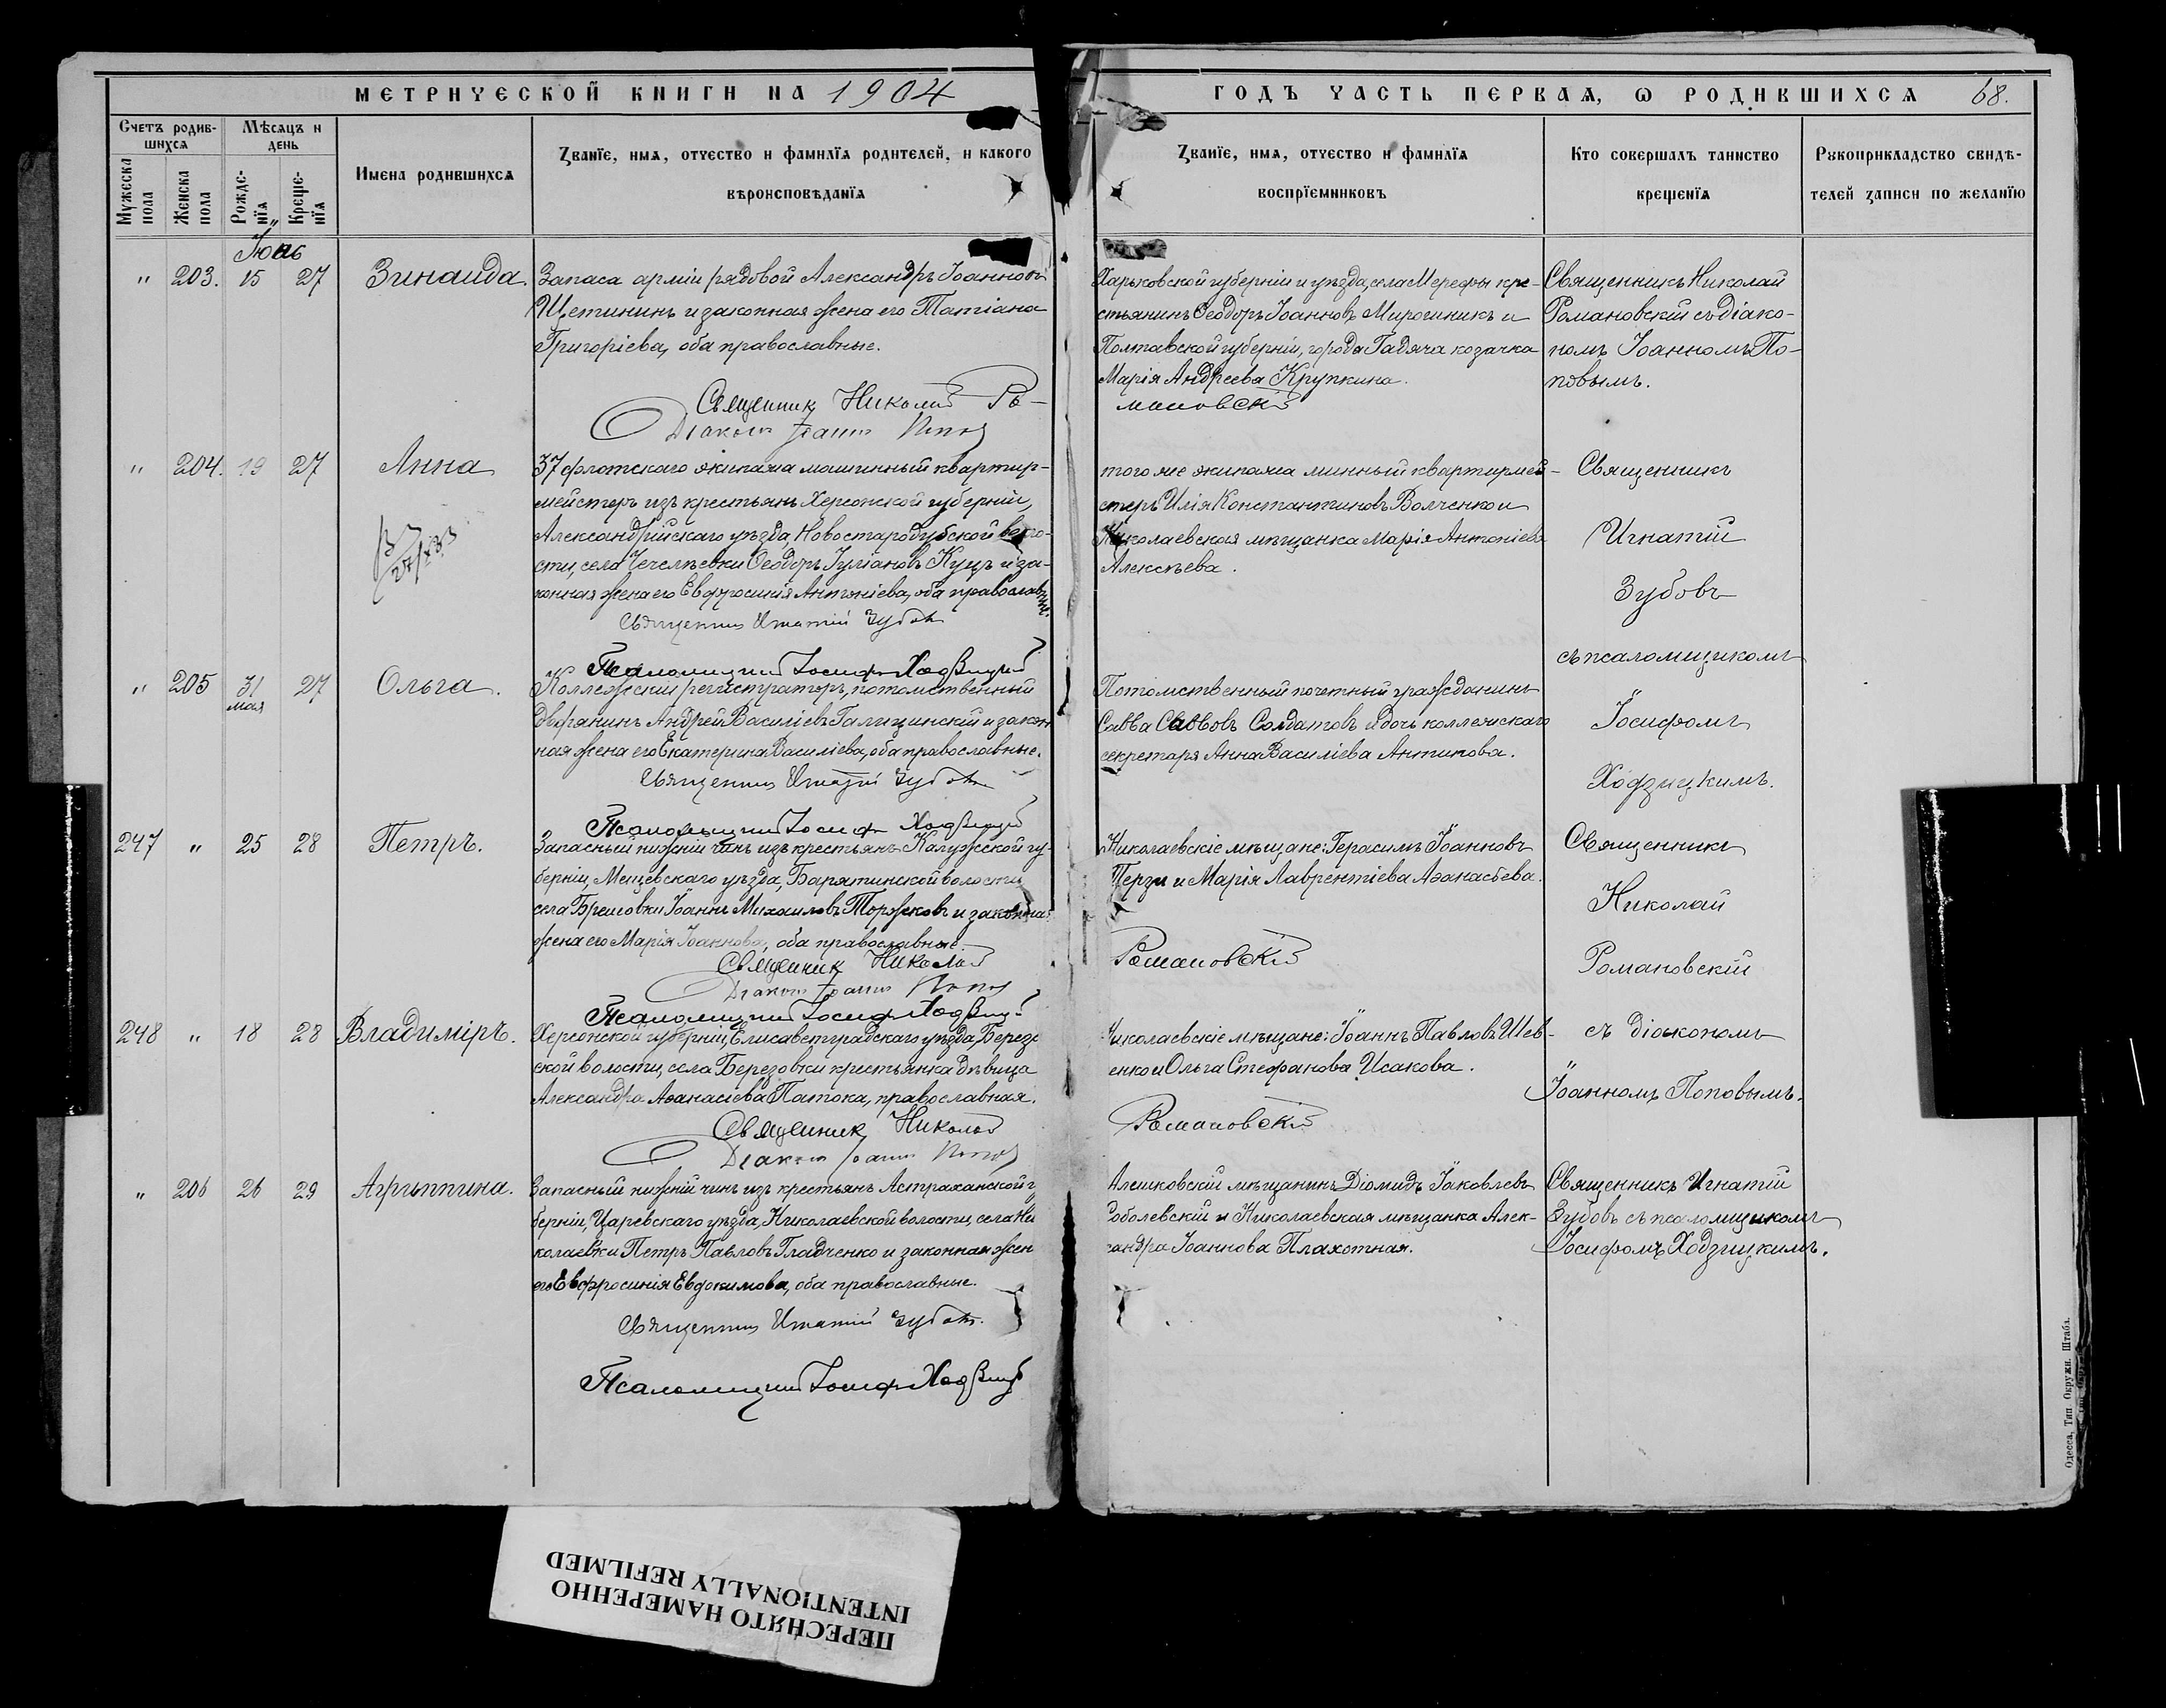 МЕТРИЧЕСКОЙ КНИГИ НА 1904
ГОДЪ ЧАСТЬ ПЕРВАЯ, Ѡ РОДИВШИХСЯ 68.
Счетъ родив-
шихся
Мѣсяцъ и
день
Мужеска
пола
Женска
пола
Рожде-
нїя
Креще-
нїя
Имена родившихся
Званїе, имя, отчество и фамилїя родителей, и какого
вѣроисповѣданїя
Званїе, имя, отчество и фамилїя
воспрїемниковъ
Кто совершалъ таинство
крещенїя
Рукоприкладство свидѣ-
телей записи по желанїю
Іюнь
" 203. 15 27 Зинаида.
Запаса арміи рядовой Александръ Іоанновъ
Щетининъ и законная жена его Татіана
Григоріева, оба православные.
Харьковской губерніи и уѣзда, села Мерефы кре-
стьянинъ Ѳеодоръ Іоанновъ Мирошникъ и
Полтавской губерніи, города Гадяча козачка
Марія Андреева Крупкина.
Священникъ Николай
Романовскій съ діако-
номъ Іоанномъ По-
повымъ.
Священник Николай Ро-
мановскій
Діаконъ Іоаннъ Попов
" 204. 19 27 Анна
37 флотскаго экипажа машинный квартир-
мейстеръ изъ крестьянъ Херсонской губерніи,
Александрійскаго уѣзда, Новостародубской воло-
сти, села Чечелѣевки Ѳеодоръ Іуліановъ Куцъ и за-
конная жена его Евфросинія Антоніева, оба православные.
того же экипажа минный квартирмей-
стеръ Илія Константиновъ Волченко и
Николаевская мѣщанка Марія Антоніева
Алексѣева.
Священникъ
Игнатій
Зубовъ
съ псаломщикомъ
Іосифомъ
Ходзицкимъ.
Священникъ Игнатій Зубовъ
Псаломщикъ Іосифъ Ходзицкій
" 205 31 мая 27 Ольга.
Коллежскій регистраторъ, потомственный
дворянинъ Андрей Василіевъ Галицинскій и закон
ная жена его Екатерина Василіева, оба православные.
Потомственный почетный гражданинъ
Савва Саввовъ Солдатовъ и дочь коллежскаго
секретаря Анна Василіева Антипова.
Священникъ Игнатій Зубовъ
Псаломщикъ Іосифъ Ходзицкій
247 " 25 28 Петръ.
Запасный нижній чинъ изъ крестьянъ Калужской гу-
берніи, Мещевскаго уѣзда, Барятинской волости
села Іоаннъ Михаиловъ Торжковъ и законная
жена его Марія Іоаннова, оба православные.
Николаевскіе мѣщане: Герасимъ Іоанновъ
Перзи и Марія Лаврентіева Аѳанасьева.
Священникъ
Николай
Романовскій
съ діакономъ
Іоанномъ Поповымъ.
Священник Николай
Романовскій
Діаконъ Іоаннъ Попов
Псаломщикъ Іосифъ Ходзицкій
248 " 18 28 Владиміръ.
Херсонской губерніи, Елисаветградскаго уѣзда, Березов
ской волости, села Березовки крестьянка дѣвица
Александра Аѳанасіева Патока, православная.
Николаевскіе мѣщане: Іоаннъ Павловъ Шев-
енко и Ольга Стефанова Исакова.
Священник Николай
Романовскій
Діаконъ Іоаннъ Попов
" 206 26 29 Агриппина.
Запасный нижній чинъ изъ крестьянъ Астраханской г
берніи, Царевскаго уѣзда, Николаевской волости, села Ни
колаевки Петръ Павловъ Гладченко и законная жен
его Евфросинія Евдокимова, оба православные.
Алешковскій мѣщанинъ Діомидъ Іаковлевъ
Соболевскій и Николаевская мѣщанка Алек-
сандра Іоаннова Плахотная.
Священникъ Игнатій
Зубовъ съ псаломщикомъ
Іосифомъ Ходзицкимъ.
Священникъ Игнатій Зубовъ.
Псаломщикъ Іосифъ Ходзицкій
Одесса, Тип Окружн. Штаба.
ПЕРЕСНЯТО НАМЕРЕННО
INTENTIONALLY REFILMED